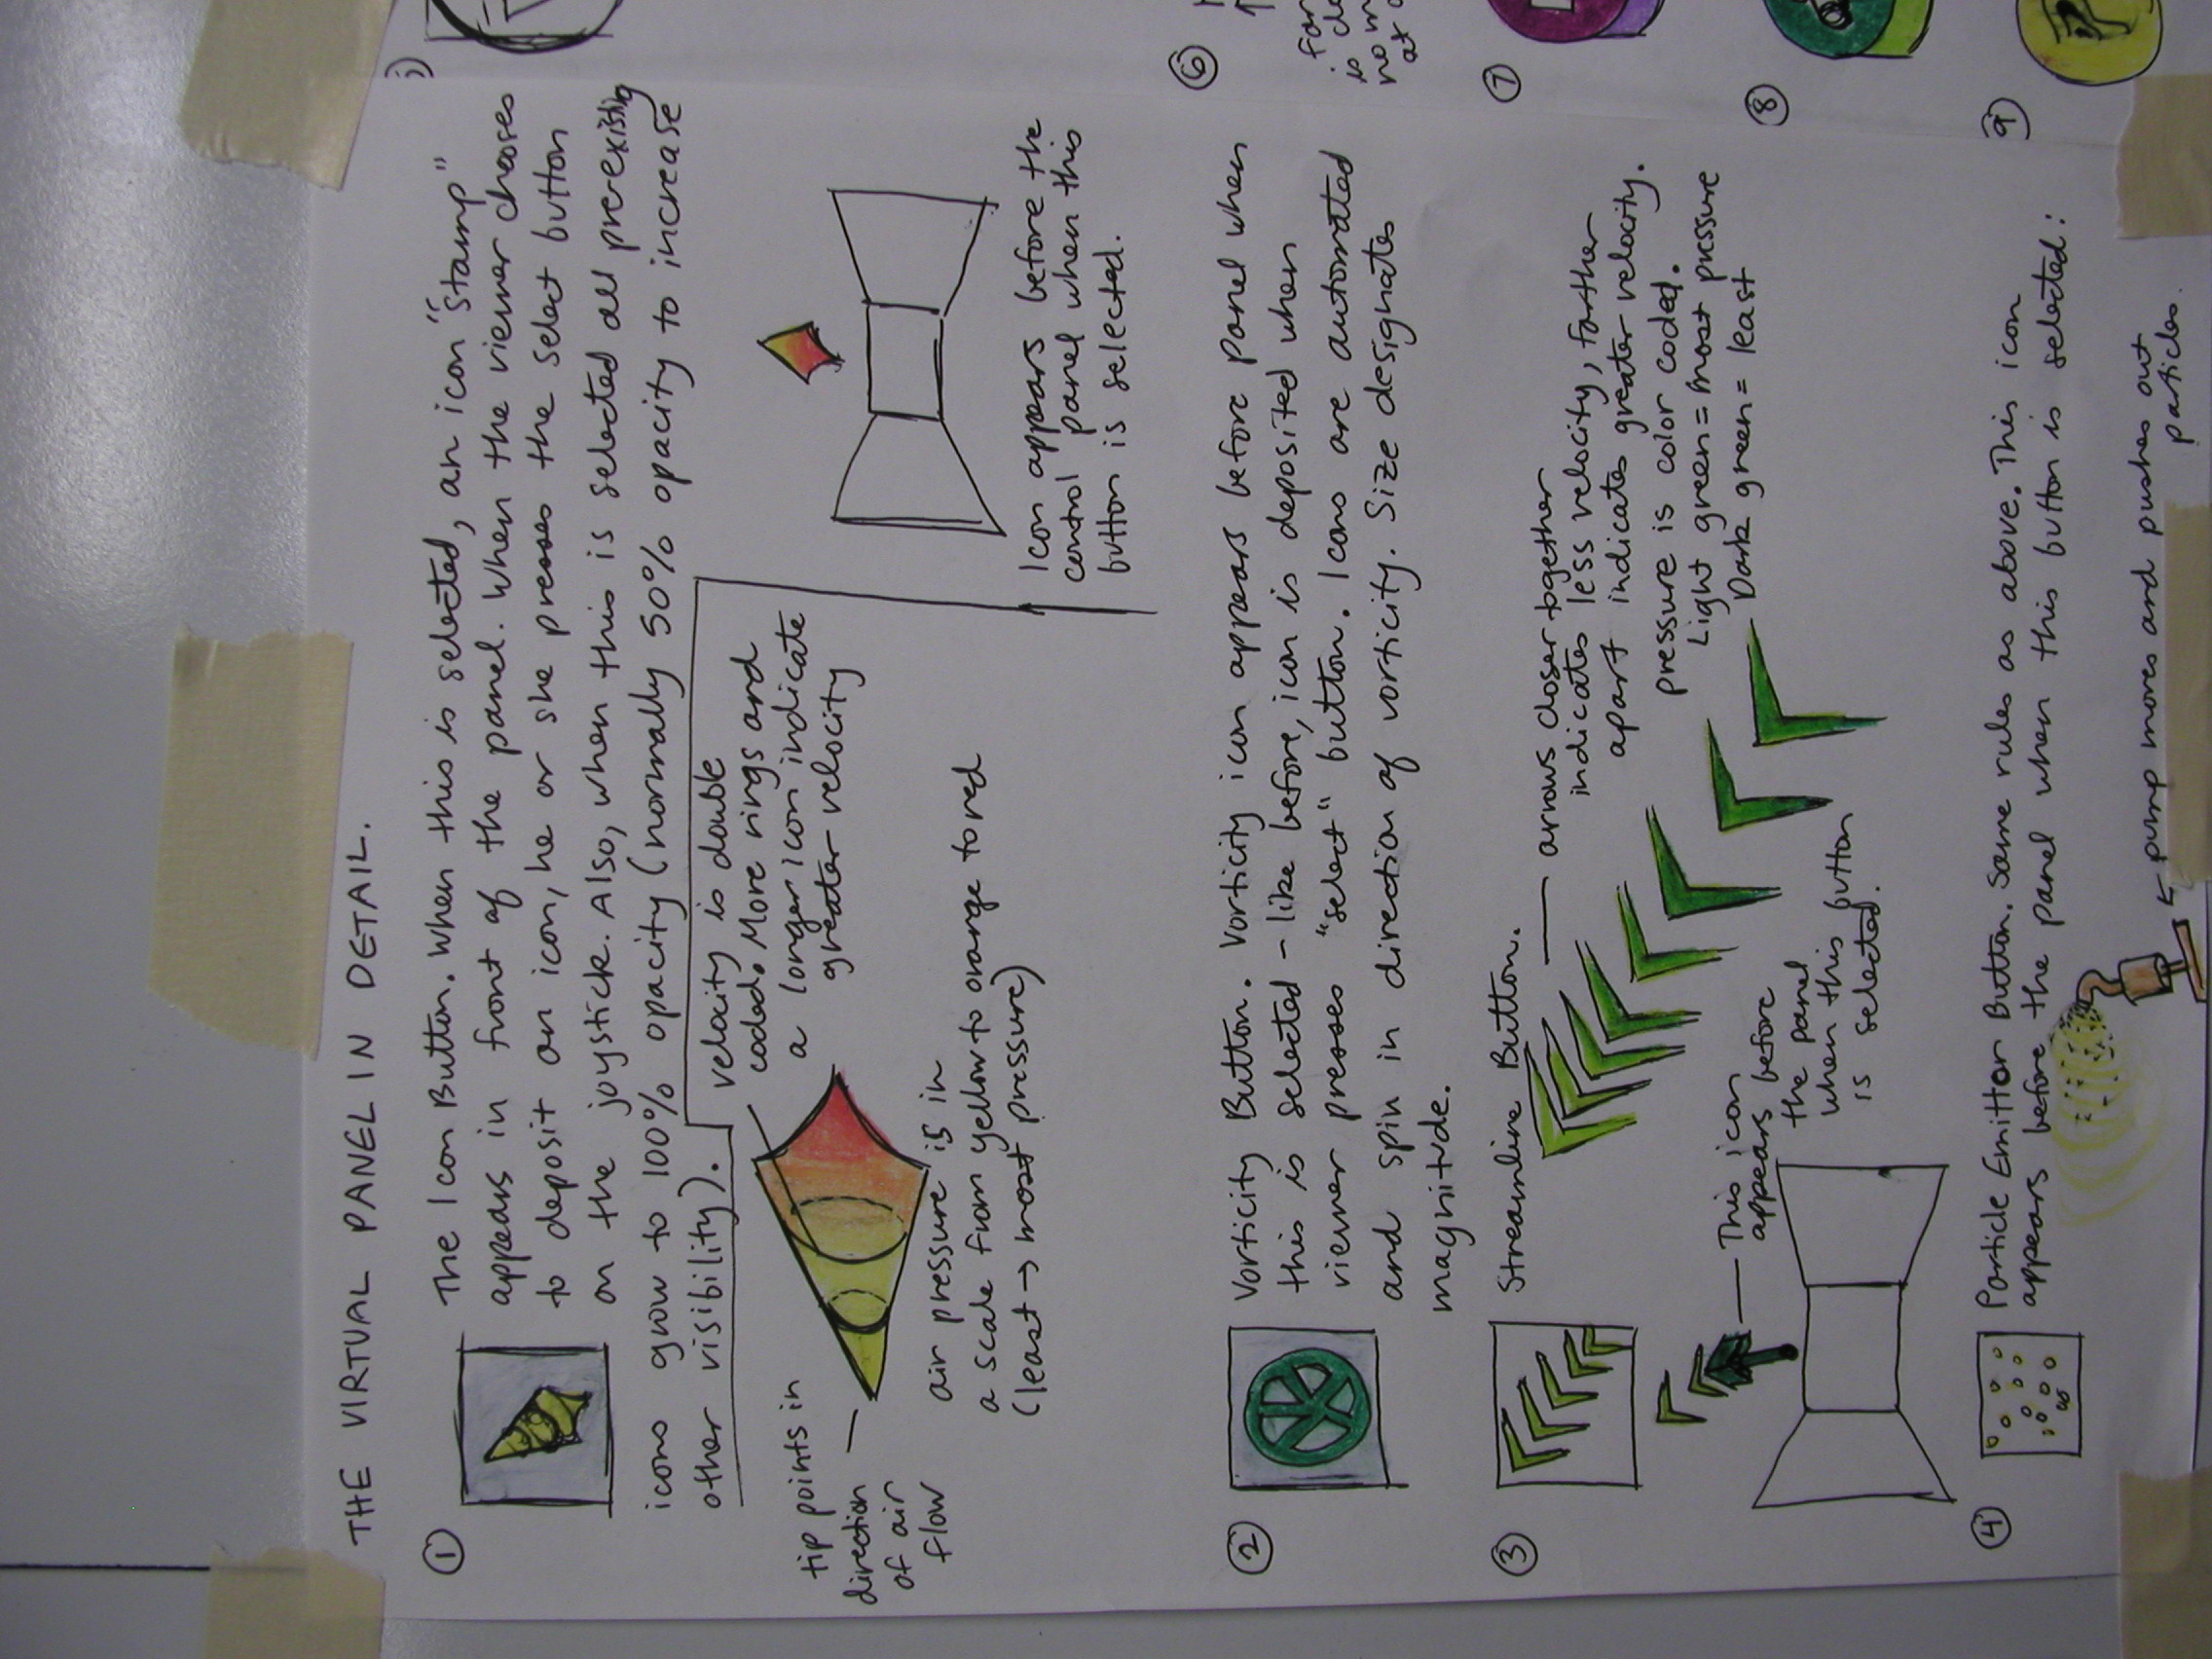 THE VIRTUAL PANEL IN DETAIL.
①
The Icon Button. When this is selected, an icon "stamp"
appears in front of the panel. When the viewer chooses
to deposit an icon, he or she presses the select button
on the joystick. Also, when this is selected all preexisting
icons grow to 100% opacity (normally 50% opacity to increase
other visibility).
velocity is double
coded. More rings and
a longer icon indicate
greater velocity
tip points in
direction
of air
flow
air pressure is in
a scale from yellow to orange to red
(least → most pressure)
Icon appears before the
control panel when this
button is selected.
②
Vorticity Button. Vorticity icon appears before panel when
this is selected - like before, icon is deposited when
viewer presses "select" button. Icons are automated
and spin in direction of vorticity. Size designates
magnitude.
③
Streamline Button.
arrows closer together
indicates less velocity, farther
apart indicates greater velocity.
pressure is color coded.
Light green = most pressure
Dark green = least
This icon
appears before
the panel
when this button
is selected.
④
Particle Emitter Button. Same rules as above. This icon
appears before the panel when this button is selected:
pump moves and pushes out
particles.
⑥
is
no
at
⑦
⑧
⑨